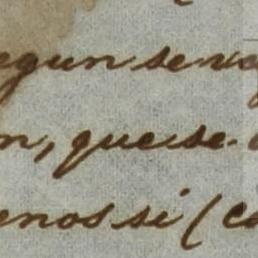 egun se va
n, que se
enos si (ca